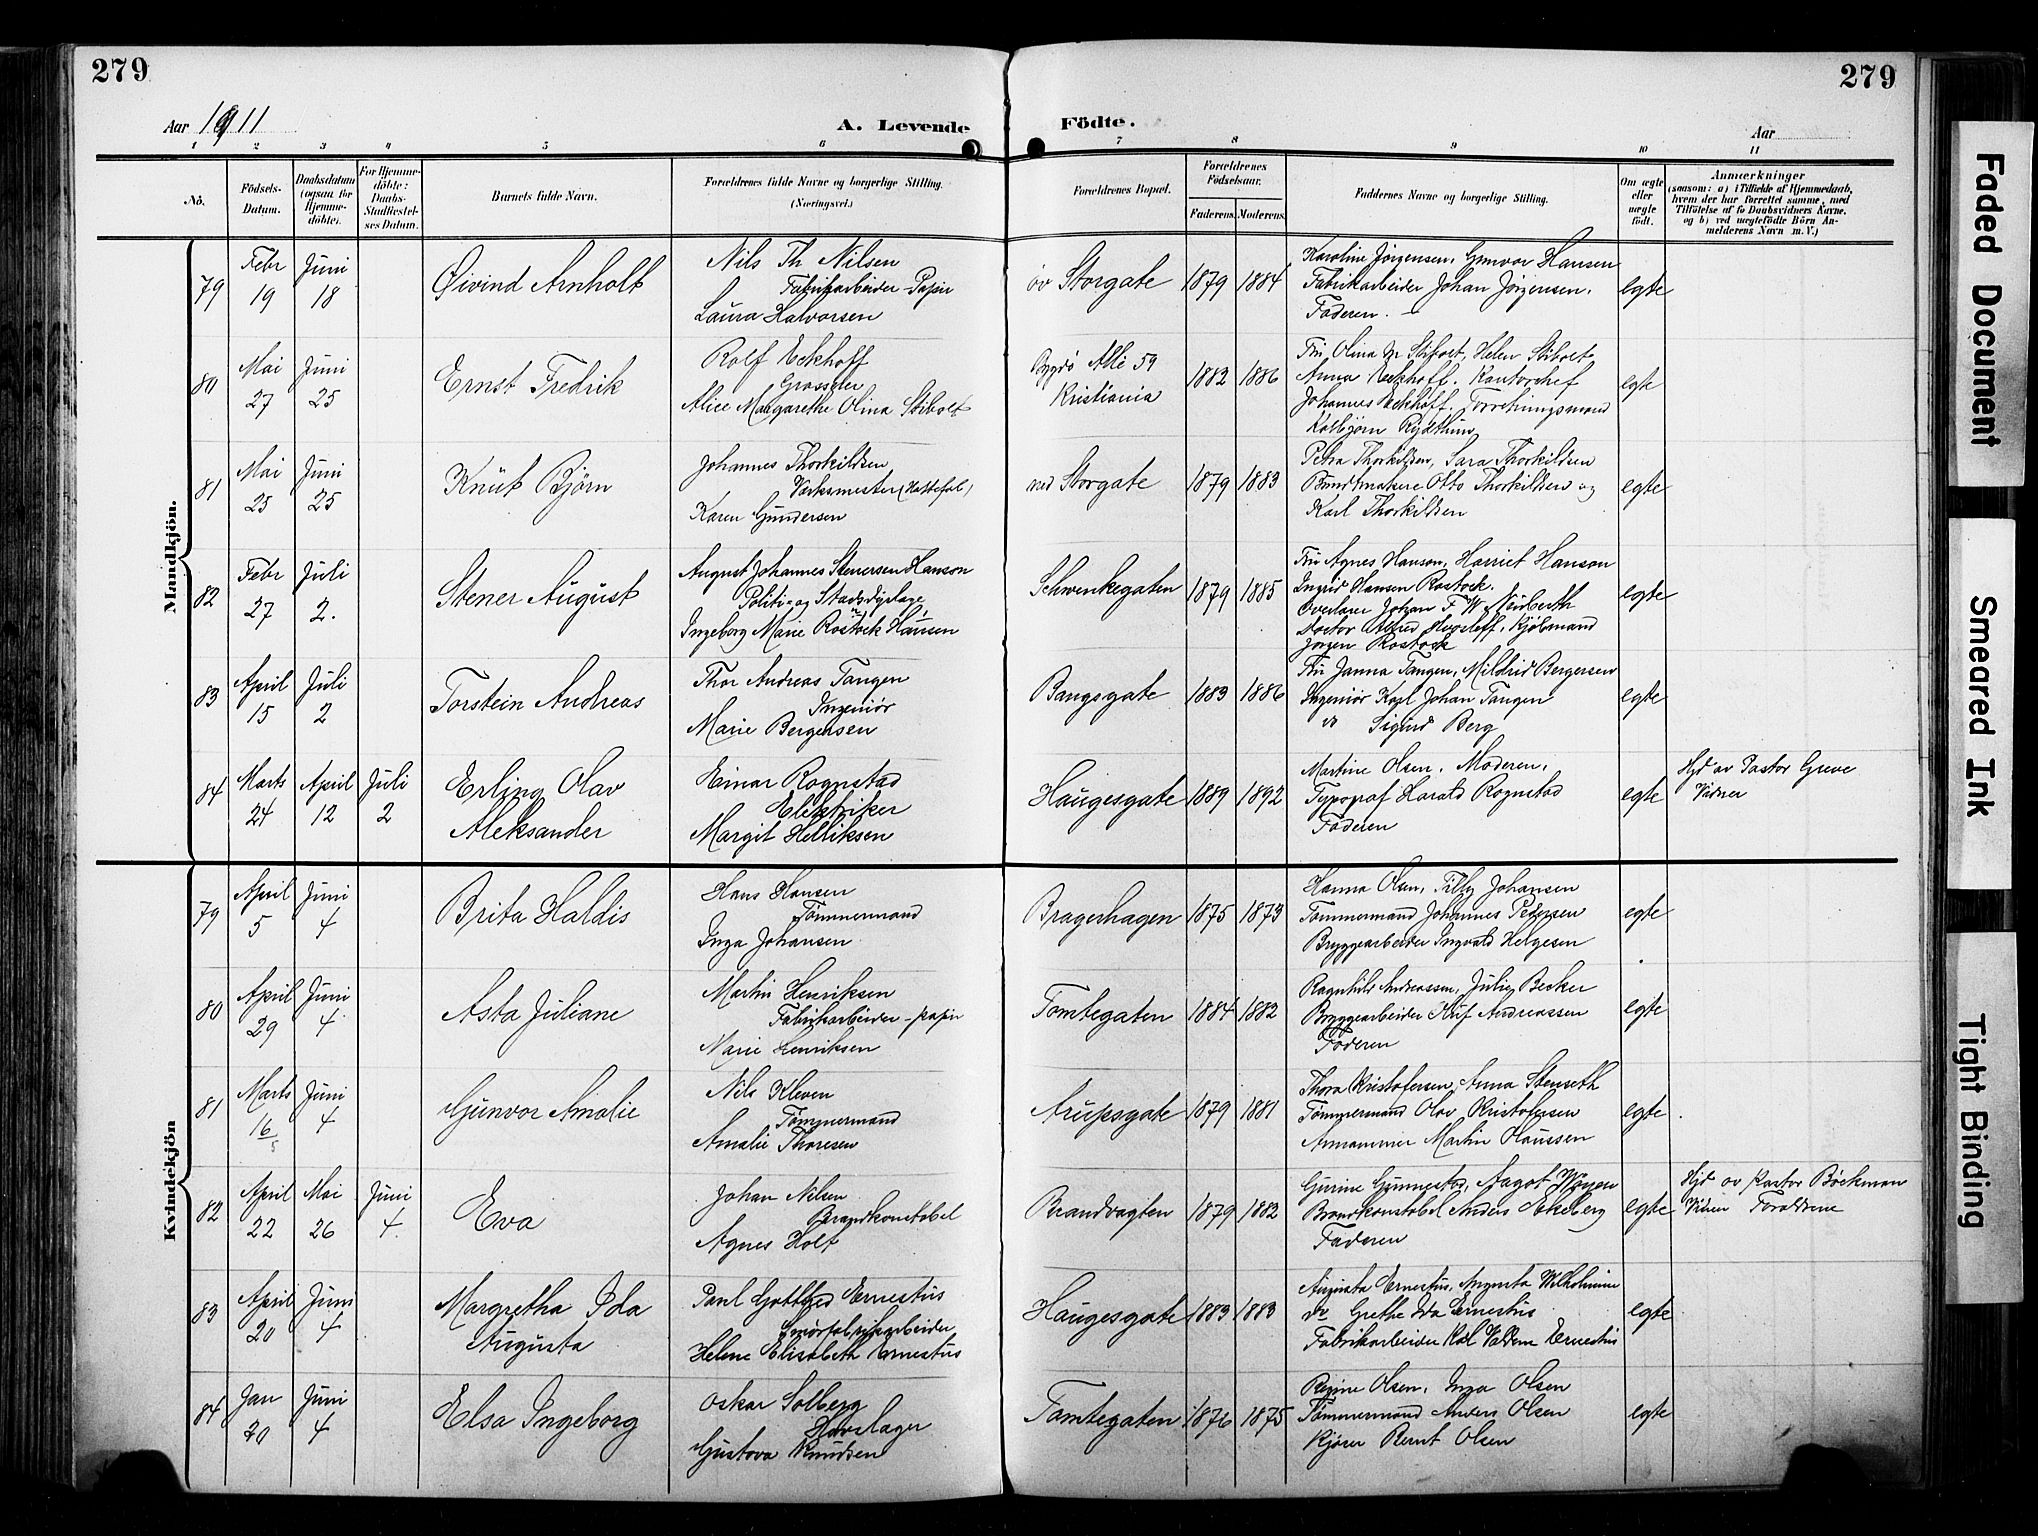 279
279
Aar 1911
A. Levende
Födte.
Aar
1 2 3 4 5 6 7 8 9 10 11
No.
Födsels-Datum.
Daabsdatum (ogsaa for Hjemme-döbte).
For Hjemme-döbte: Daabs-Stadfæstel-ses Datum.
Barnets fulde Navn.
Forældrenes fulde Navne og borgerlige Stilling.
(Næringsvei.)
Forældrenes Bopæl.
Forældrenes Födselsaar.
Faderens. Moderens.
Faddernes Navne og borgerlige Stilling.
Om ægte eller uægte födt.
Anmærkninger
(saasom: a) i Tilfælde af Hjemmedaab, hvem der har forrettet samme, med Tilføielse af to Daabsvidners Navne, og b) ved uægtefödte Börn An-melderens Navn m. V.)
Mandkjön.
79 Febr 19 Juni 18 Øivind Arnholt
Nils Th Nilsen
Fabrikarbeider Papir
Laura Halvorsen
öv Storgate 1879 1884
Karoline Jörgensen, Gunvor Hansen
Fabrikarbeider Johan Jörgensen.
Faderen.
egte
80 Mai 27 Juni 25 Ernst Fredrik
Rolf Eckhoff
Grosserer
Alice Margarethe Olina Stibolt
Bygdö Allé 59
Kristiania
1882 1886
Fru Olina M Stibolt, Helen Stibolt
Anna Eckhoff. Kontorchef
Johannes Eckhoff. Forretningsmand
Kolbjörn
egte
81 Mai 25 Juni 25 Knut Björn
Johannes Thorkildsen
Verksmester (Hattefab)
Karen Gundersen
ned Storgate 1879 1883
Petra Thorkildsen, Sara Thorkildsen
Bundtmakere Otto Thorkildsen og
Karl Thorkildsen
egte
82 Febr 27 Juli 2. Stener August
August Johannes Stenersen Hanson
Politi- og Stadsdyrlæge
Ingeborg Marie Rostock Hansen
Schwenkegaten 1879 1885
Fru Agnes Hanson, Harriet Hanson
Ingrid Hansen Rostock.
Overlærer Johan F W
Doctor Alfred Kjöbmand
Jörgen Rostock
egte
83 April 15 Juli 2 Torstein Andreas
Thor Andreas Tangen
Ingeniör
Marie Bergersen
Bangsgate 1883 1886
Fru Janna Tangen, Mildrid Bergersen
Ingeniör Karl Johan Tangen
do Sigurd Berg
egte
84 Marts 24 April 12 Juli 2 Erling Olav
Aleksander
Einar Rognstad
Elektriker
Margit Henriksen
Haugesgate 1889 1892
Martine Olsen. Moderen.
Typograf Harald Rognstad
Faderen
egte
Hjd av Pastor Greve
Vidner
Kvindekjön
79 April 5 Juni 4 Brita Haldis
Hans Hansen
Tömmermand
Inga Johansen
Bragerhagen 1875 1873
Hanna Olsen, Tilly Johansen
Tömmermand Johannes Pedersen
Bryggearbeider Ingvald Helgesen
egte
80 April 29 Juni 4 Asta Juliane
Martin Henriksen
Fabrikarbeider - papir
Marie Henriksen
Tomtegaten 1884 1882
Ragnhild Andreassen, Julie Becker
Bryggearbeider Oluf Andreassen
Faderen
egte
81 Marts 16 Juni 4 Gunvor Amalie
Nils Kleven
Tömmermand
Amalie Thoresen
Arupsgate 1879 1881
Thora Kristofersen, Anna Stenseth
Tömmermand Olav Kristofersen
Martin Clausen
egte
82 April 22 Mai 26 Juni 4. Eva
Johan Nilsen
Brandkonstabel
Agnes Holt
Brandvagten 1879 1882
Gurine Gunnestad, Aagot
Brandkonstabel Anders Sekeberg
Faderen
egte
Hjd av Pastor Böckman
Vidner Forældrene
83 April 20 Juni 4 Margretha Ida
Augusta
Paul Gottfred Ernestus
Smörfabrikarbeider
Helene Elisabeth Ernestus
Haugesgate 1883 1883
Augusta Ernestus, Augusta Wilhelmine
do Grethe Ida Ernestus
Fabrikarbeider Karl Valdem Ernestus
egte
84 Jan 20 Juni 4 Elsa Ingeborg
Oskar Solberg
Hovslager
Gustava Knudsen
Tomtegaten 1876 1875
Regine Olsen, Inga Olsen
Tömmermand Anders Olsen
Kjörer Bernt Olsen
egte
Faded Document
Smeared Ink
Tight Binding